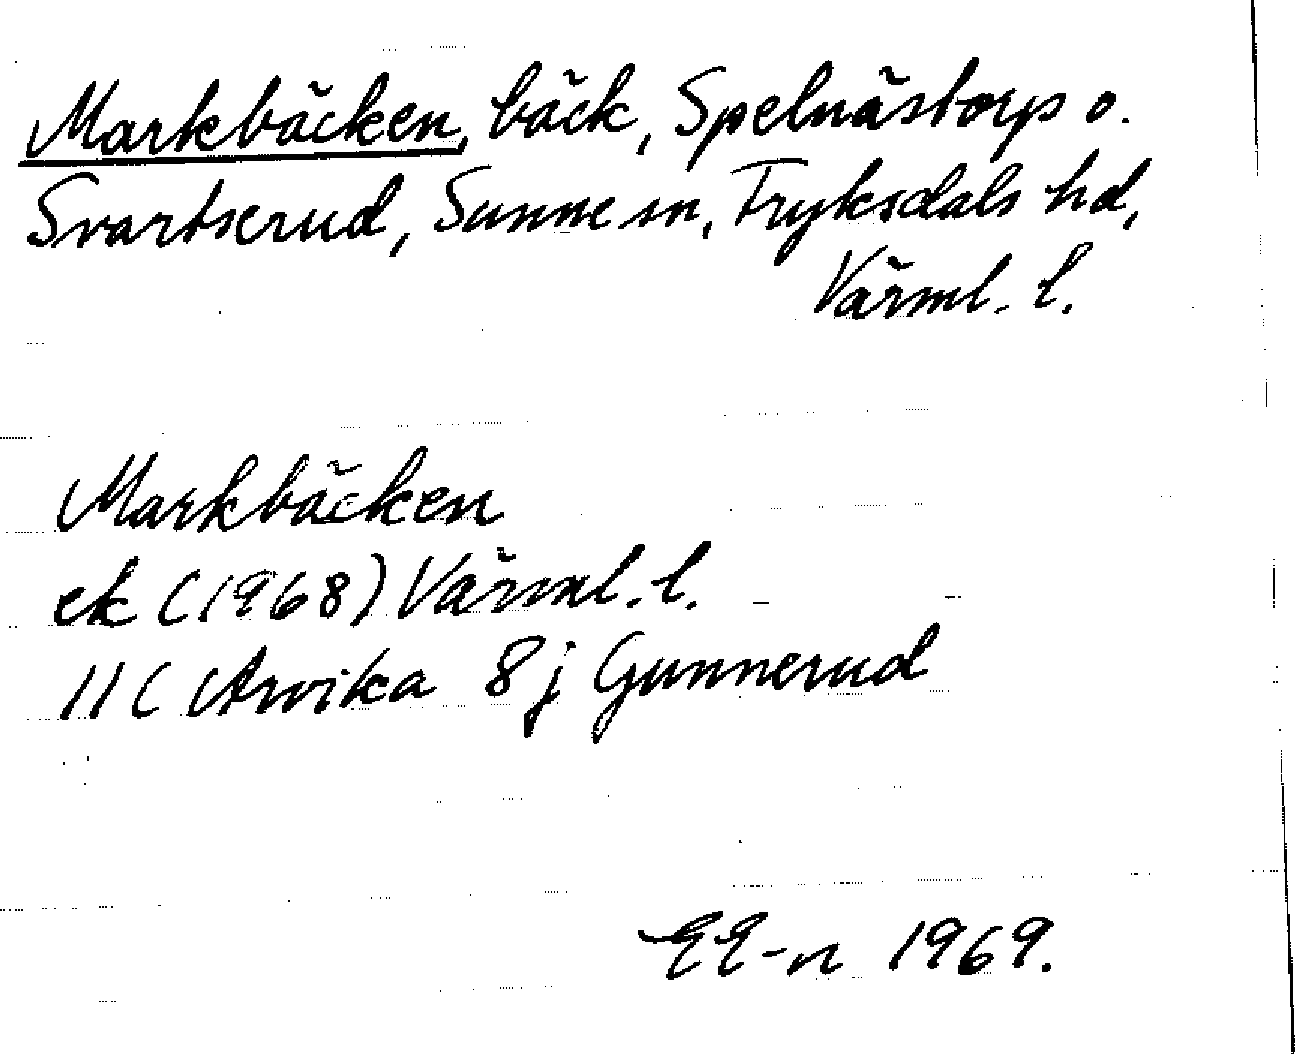 Markbäcken, bäck, Spelnästorps o.
Svartserud, Sunne sn, Fryksdals hd,
Värml. l.
Markbäcken
ek (1968) Värml. l.
11C Arvika 8j Gunnerud
EE-n 1969.